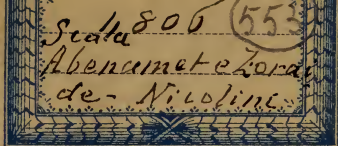 Scala 1806 (553)
Abenamet e Zorai
de - Nicolini